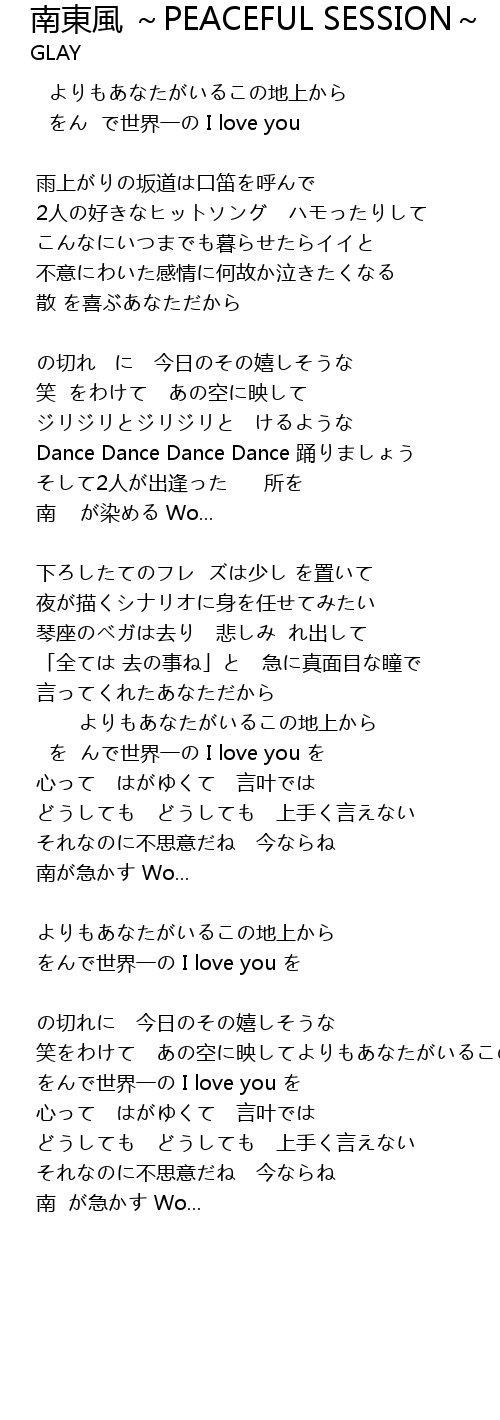 南東風 ～PEACEFUL SESSION～
GLAY
よりもあなたがいるこの地上から
をん で世界一の I love you
雨上がりの坂道は口笛を呼んで
2人の好きなヒットソング ハモったりして
こんなにいつまでも暮らせたらイイと
不意にわいた感情に何故か泣きたくなる
散 を喜ぶあなただから
の切れ に 今日のその嬉しそうな
笑 をわけて あの空に映して
ジリジリとジリジリと けるような
Dance Dance Dance Dance 踊りましょう
そして2人が出逢った 所を
南 が染める Wo…
下ろしたてのフレ ズは少し を置いて
夜が描くシナリオに身を任せてみたい
琴座のベガは去り 悲しみ れ出して
「全ては 去の事ね」と 急に真面目な瞳で
言ってくれたあなただから
よりもあなたがいるこの地上から
を んで世界一の I love you を
心って はがゆくて 言叶では
どうしても どうしても 上手く言えない
それなのに不思意だね 今ならね
南が急かす Wo…
よりもあなたがいるこの地上から
をんで世界一の I love you を
の切れに 今日のその嬉しそうな
笑をわけて あの空に映してよりもあなたがいるこ
をんで世界一の I love you を
心って はがゆくて 言叶では
どうしても どうしても 上手く言えない
それなのに不思意だね 今ならね
南 が急かす Wo…